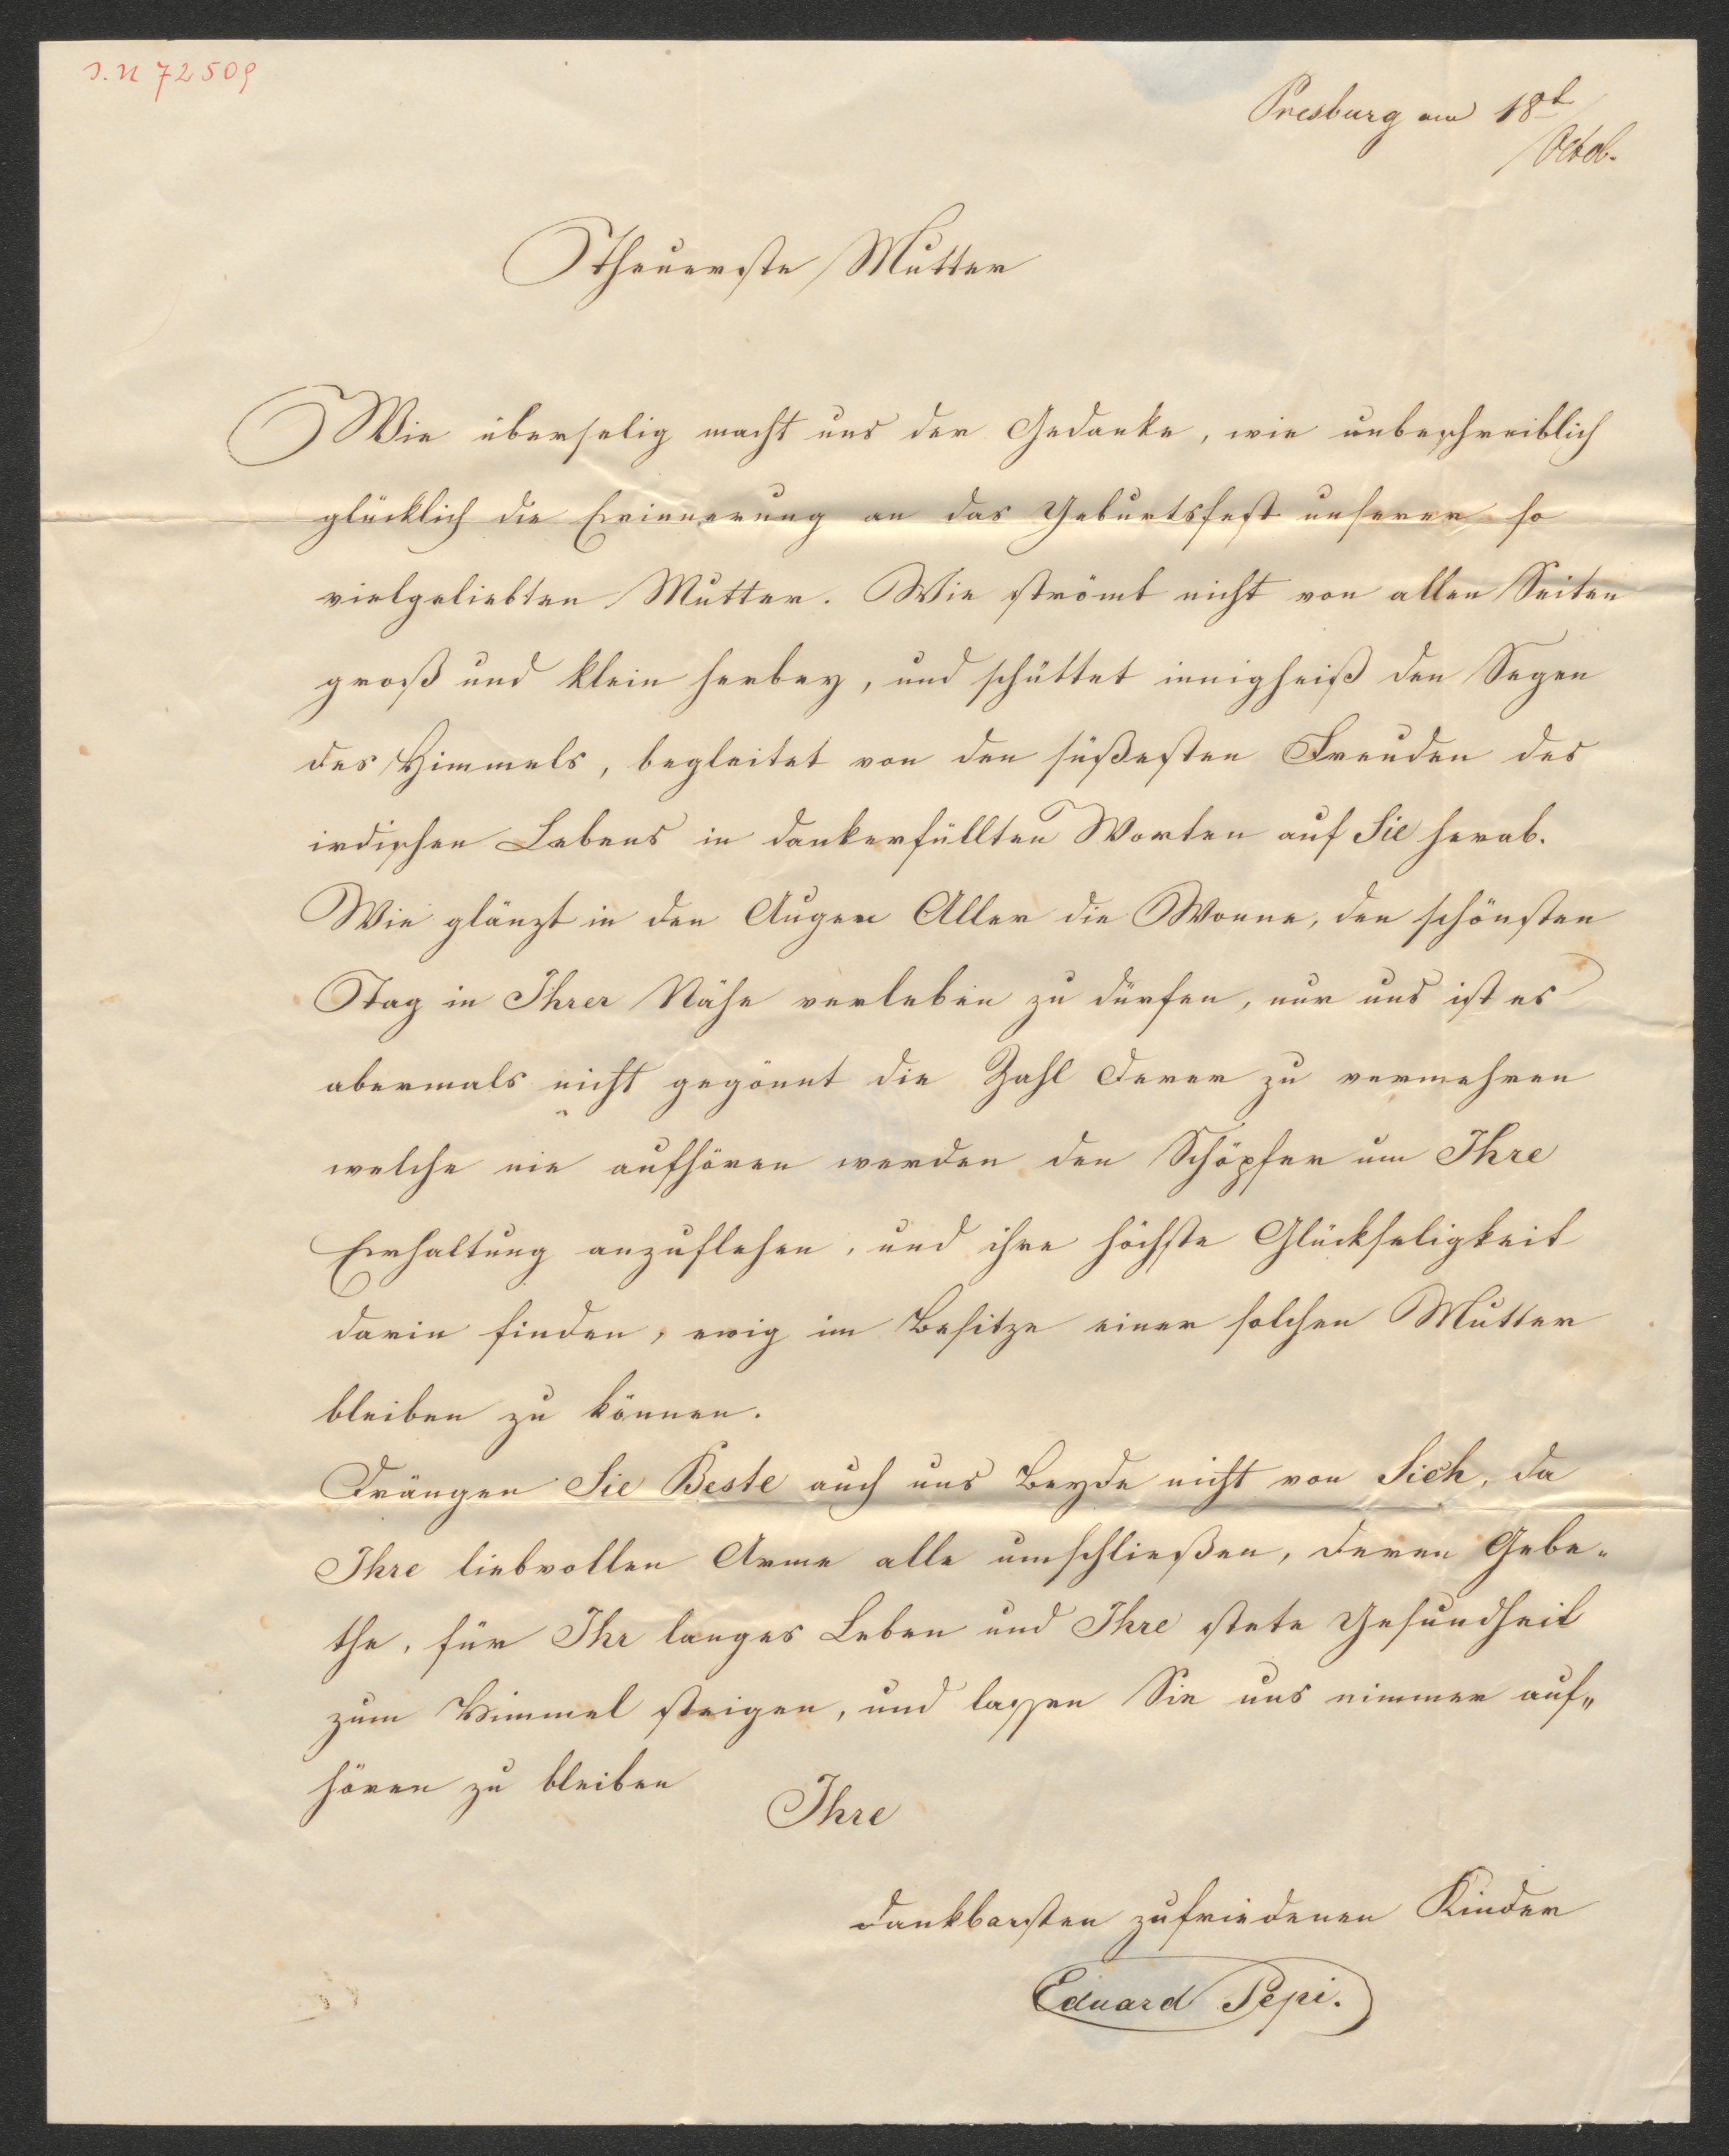 J.N 72509
Presburg am 18t
Octob.
Theuerste Mutter
Wie überselig macht uns der Gedanke, wie unbeschreiblich
glücklich die Erinnerung an das Geburtsfest unserer so
vielgeliebten Mutter. Wie strömt nicht von allen Seiten
groß und klein herbey, und schüttet innigheiß den Segen
des Himmels, begleitet von den süßesten Freuden des
irdischen Lebens in dankerfüllten Worten auf Sie herab.
Wie glänzt in den Augen Aller die Wonne, den schönsten
Tag in Ihrer Nähe verleben zu dürfen, nur uns ist es
abermals nicht gegönnt die Zahl derer zu vermehren
welche nie aufhören werden den Schöpfer um Ihre
Erhaltung anzuflehen, und ihre höchste Glückseligkeit
darin finden, ewig im Besitze einer solchen Mutter
bleiben zu können.
Drängen Sie Beste auch uns Beyde nicht von Sich, da
Ihre liebvollen Arme alle umschließen, deren Gebe-
the, für Ihr langes Leben und Ihre stete Gesundheit
zum Himmel steigen, und lassen Sie uns nimmer auf-
hören zu bleiben
Ihre
dankbarsten zufriedenen Kinder
Eduard Pepi.